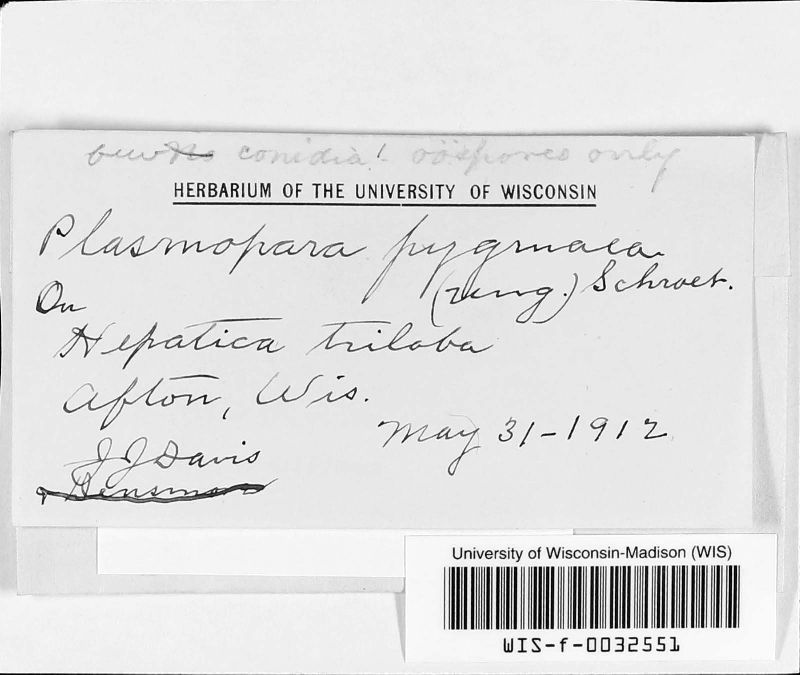 conidia! oöspores only
HERBARIUM OF THE UNIVERSITY OF WISCONSIN
Plasmopara pygmaea
(Ung.) Schroet.
On
Hepatica triloba
Afton, Wis.
May 31-1912
J J Davis
University of Wisconsin-Madison (WIS)
WIS-f-0032551